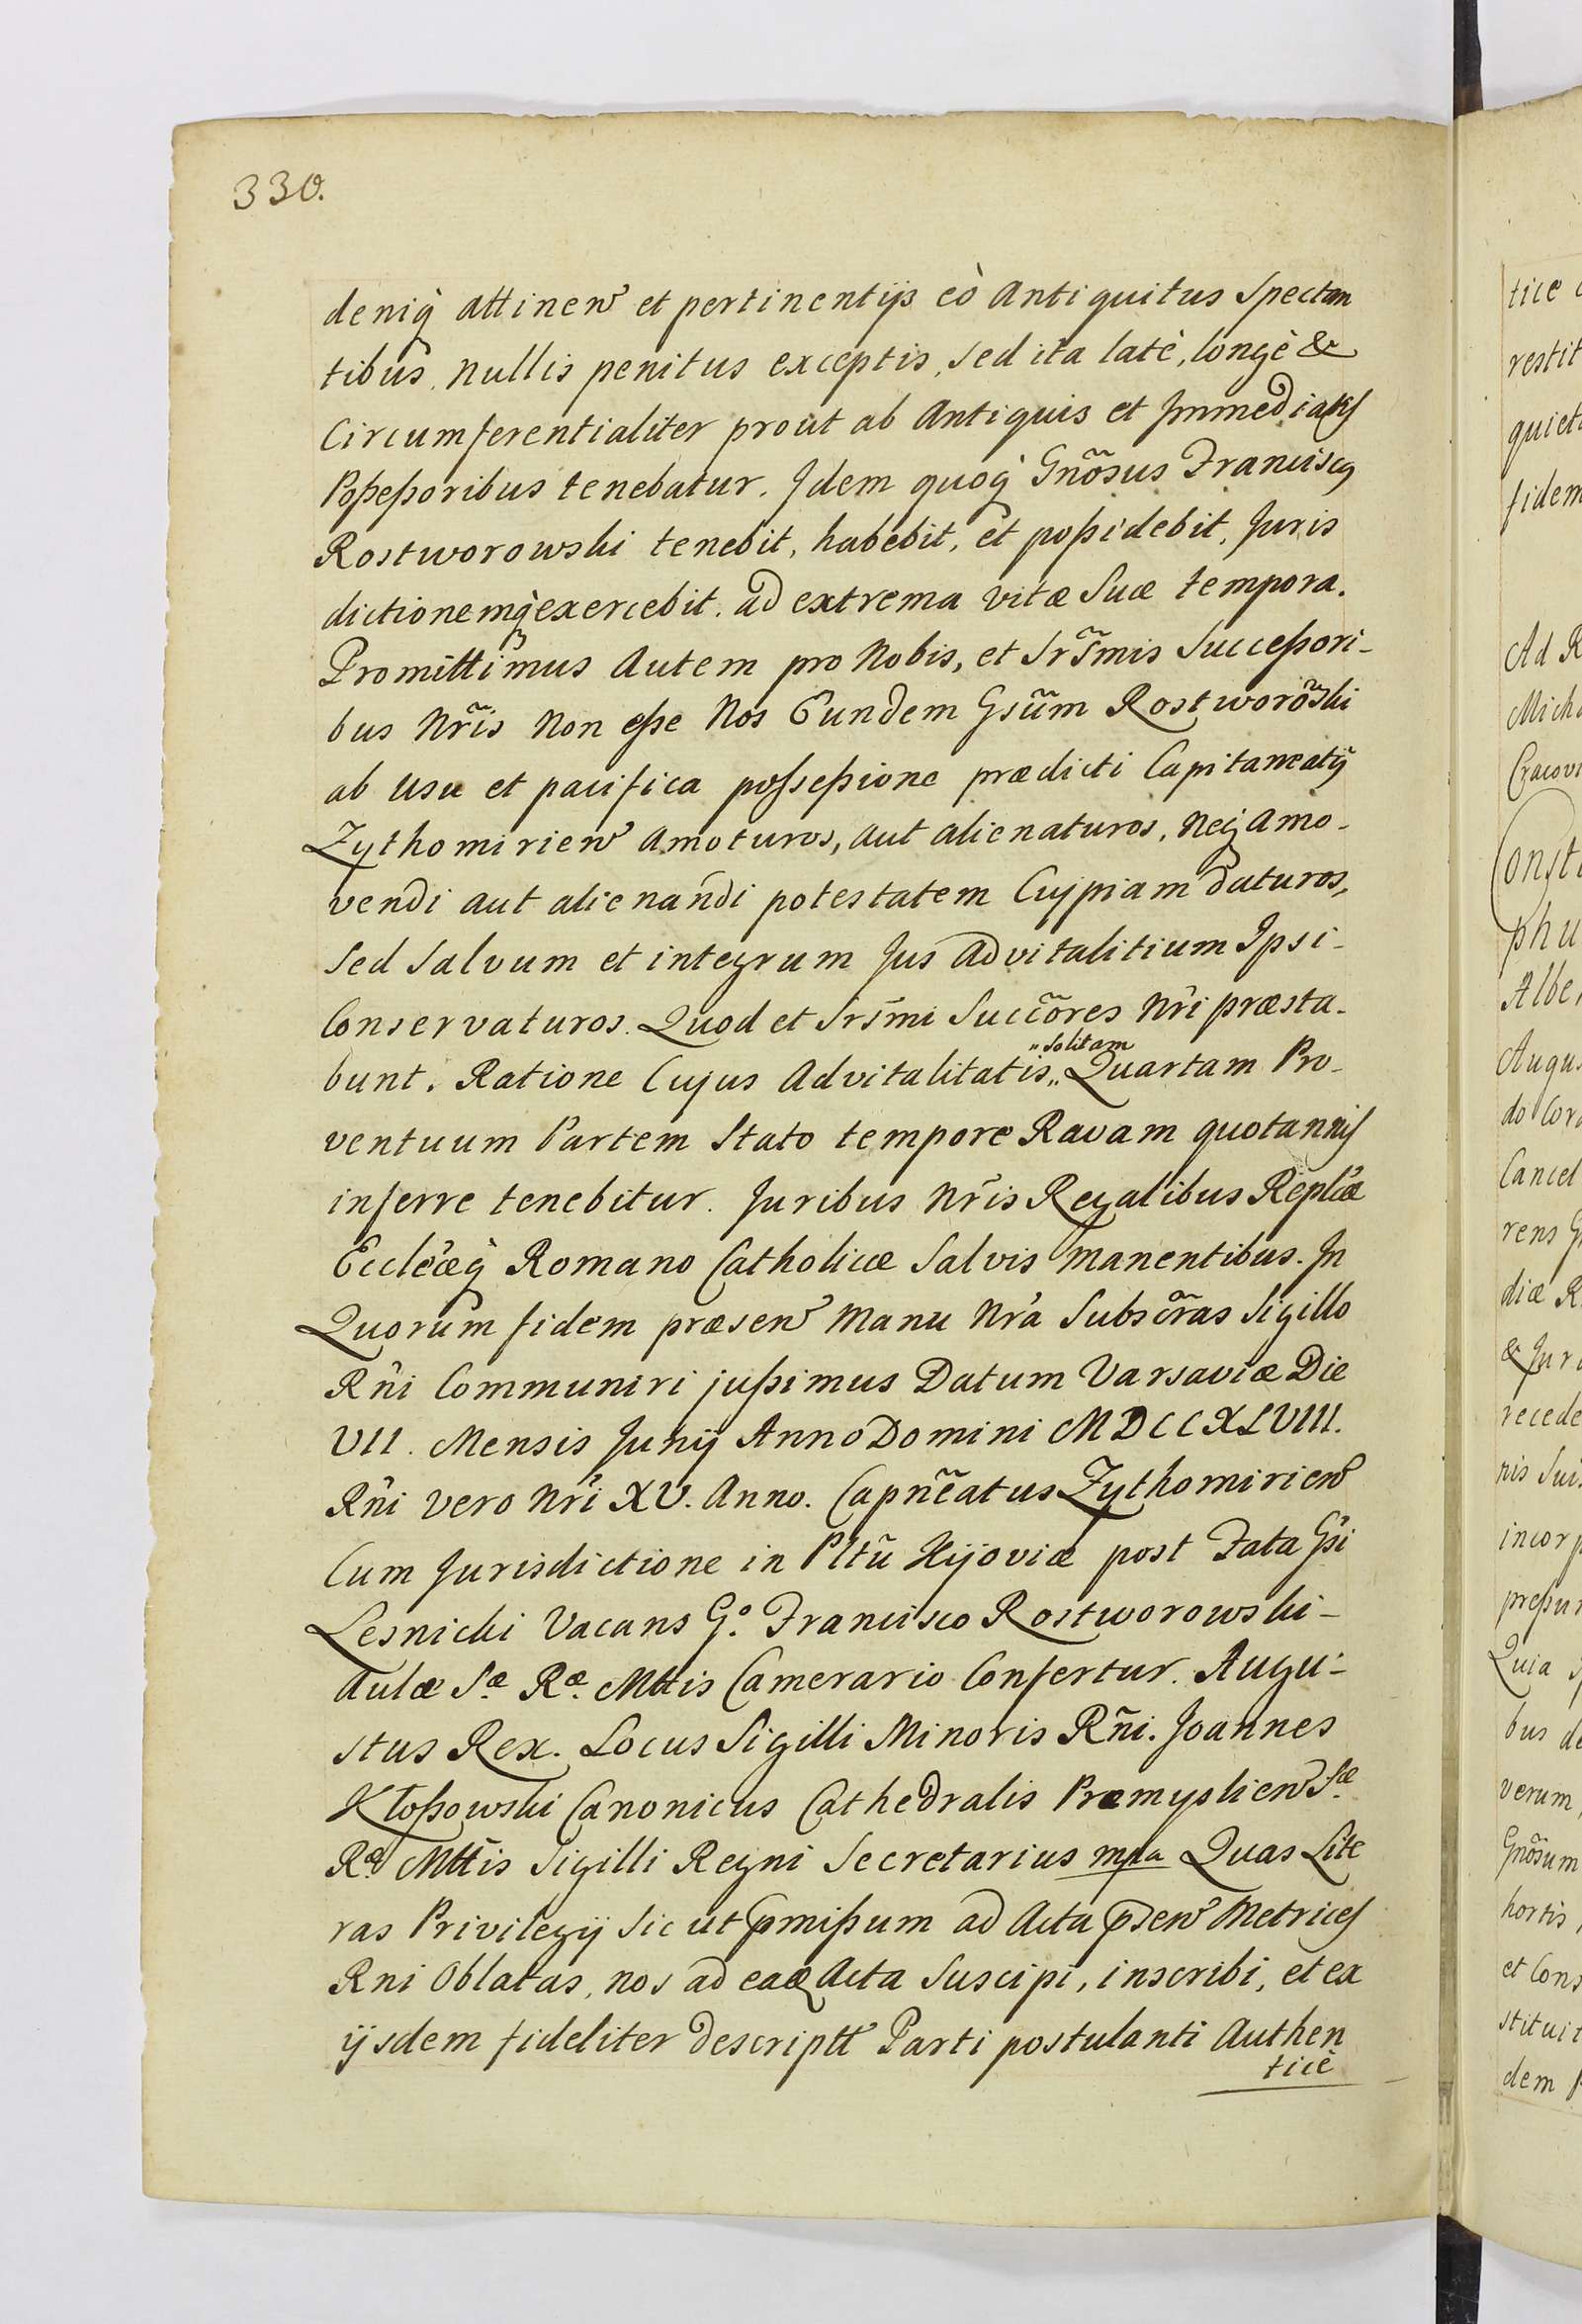 330.
deniq̀ attinen̄ et pertinentijs eò Antiquitus Spectan
tibus, nullis penitus exceptis, sed ita latè, longè &
Circumferentialiter prout ab Antiquis et Immediatis
Poßeßoribus tenebatur. Idem quoq̀ Gnõsus Franciscq
Rostworowski tenebit, habebit, et poßidebit, Juris
dictionemq̀ exercebit. ad extrema vitæ Suæ tempora.
Promittimus Autem pro Nobis, et Sr̃smis Succeßori-
bus Nr̃is Non eße Nos Eundem Gsũm Rostworõski
ab Usu et pacifica posseßione prædicti Capitaneatỹ
Zythomirien̄ Amoturos, aut alienaturos, Neq̀ Amo-
vendi aut alienandi potestatem Cuipiam daturos,
Sed Salvum et integrum Jus Advitalitium Ipsi-
Conservaturos. Quod et Srs̄mi Succõres Nr̃i præsta-
„Solitam
bunt. Ratione Cujus Advitalitatis„ Quartam Pro-
ventuum Partem Stato tempore Ravam quotannis
inferre tenebitur. Juribus Nr̃is Regalibus Replcæ
Eccleæq̀ Romano Catholicæ Salvis manentibus. In
Quorum fidem præsen̄ Manu Nr̃a Subscr̃as Sigillo
Rñi Communiri jußimus Datum Varsaviæ Die
VII. Mensis Junij Anno Domini MDCCXLVIII.
Rñi vero Nr̃i XV. Anno. Capñeatus Zythomirien̄
Cum Jurisdictione in Pltũ Kijoviæ post Fata Gsi
Lesnicki Vacans G.º Francisco Rostworowski-
Aulæ S.æ R.æ Mttis Camerario Confertur. Augu-
stus Rex. Locus Sigilli Minoris Rñi. Joannes
Kłoßowski Canonicus Cathedralis Præmyslien̄ S.æ
R.æ Mttis Sigilli Regni Secretarius mpa Quas Lite
ras Privilegij Sicut p̄mißum ad Acta p̄sen̄ Metrices
Rni Oblatas, nos ad eaq̀ Acta Suscipi, inscribi, et ex
ijsdem fideliter descriptt Parti postulanti Authen
ticè
tice
restit
quiet
fidem
Ad R
Mich
Cracov
Consti
phu
Alber
Augus
do Cor
Cancel
rens G
diæ R.
& Jur
recede
ris Sui
incorp
preßu
Quia
bus de
verum,
Gnõsum
hortis,
et Cons
stituit
dem